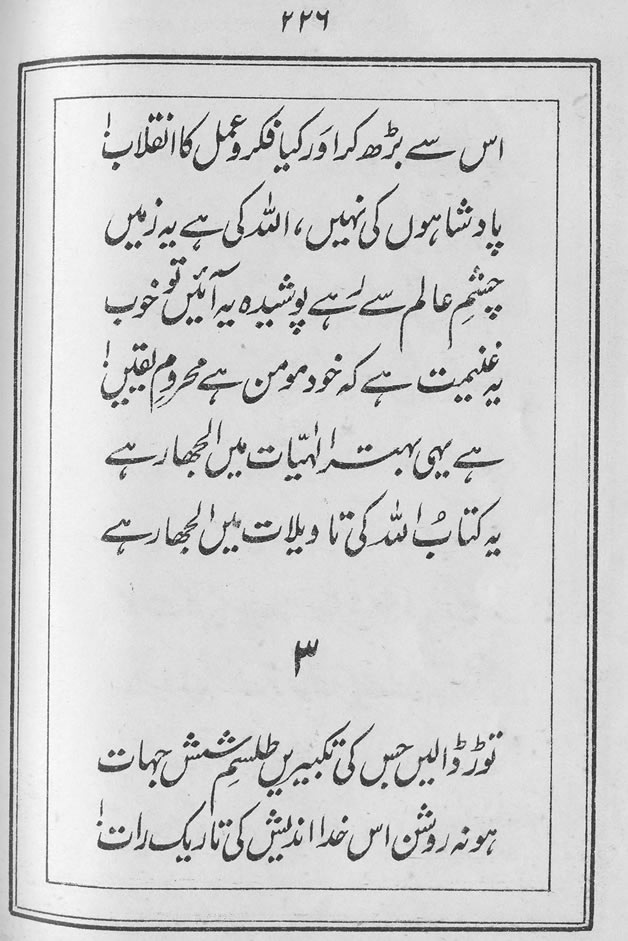 ۲۲۶
اس سے بڑھ کر اور کیا فکر و عمل کا انقلاب!
پادشاہوں کی نہیں، اللہ کی ہے یہ زمیں
چشمِ عالم سے رہے پوشیدہ یہ آئیں تو خوب
یہ غنیمت ہے کہ خود مومن ہے محرومِ یقیں!
ہے یہی بہتر الٰہیّات میں الجھا رہے
یہ کتابُ اللہ کی تاویلات میں الجھا رہے
۳
توڑ ڈالیں جس کی تکبیریں طلسمِ شش جہات
ہو نہ روشن اس خدا اندیش کی تاریک رات!